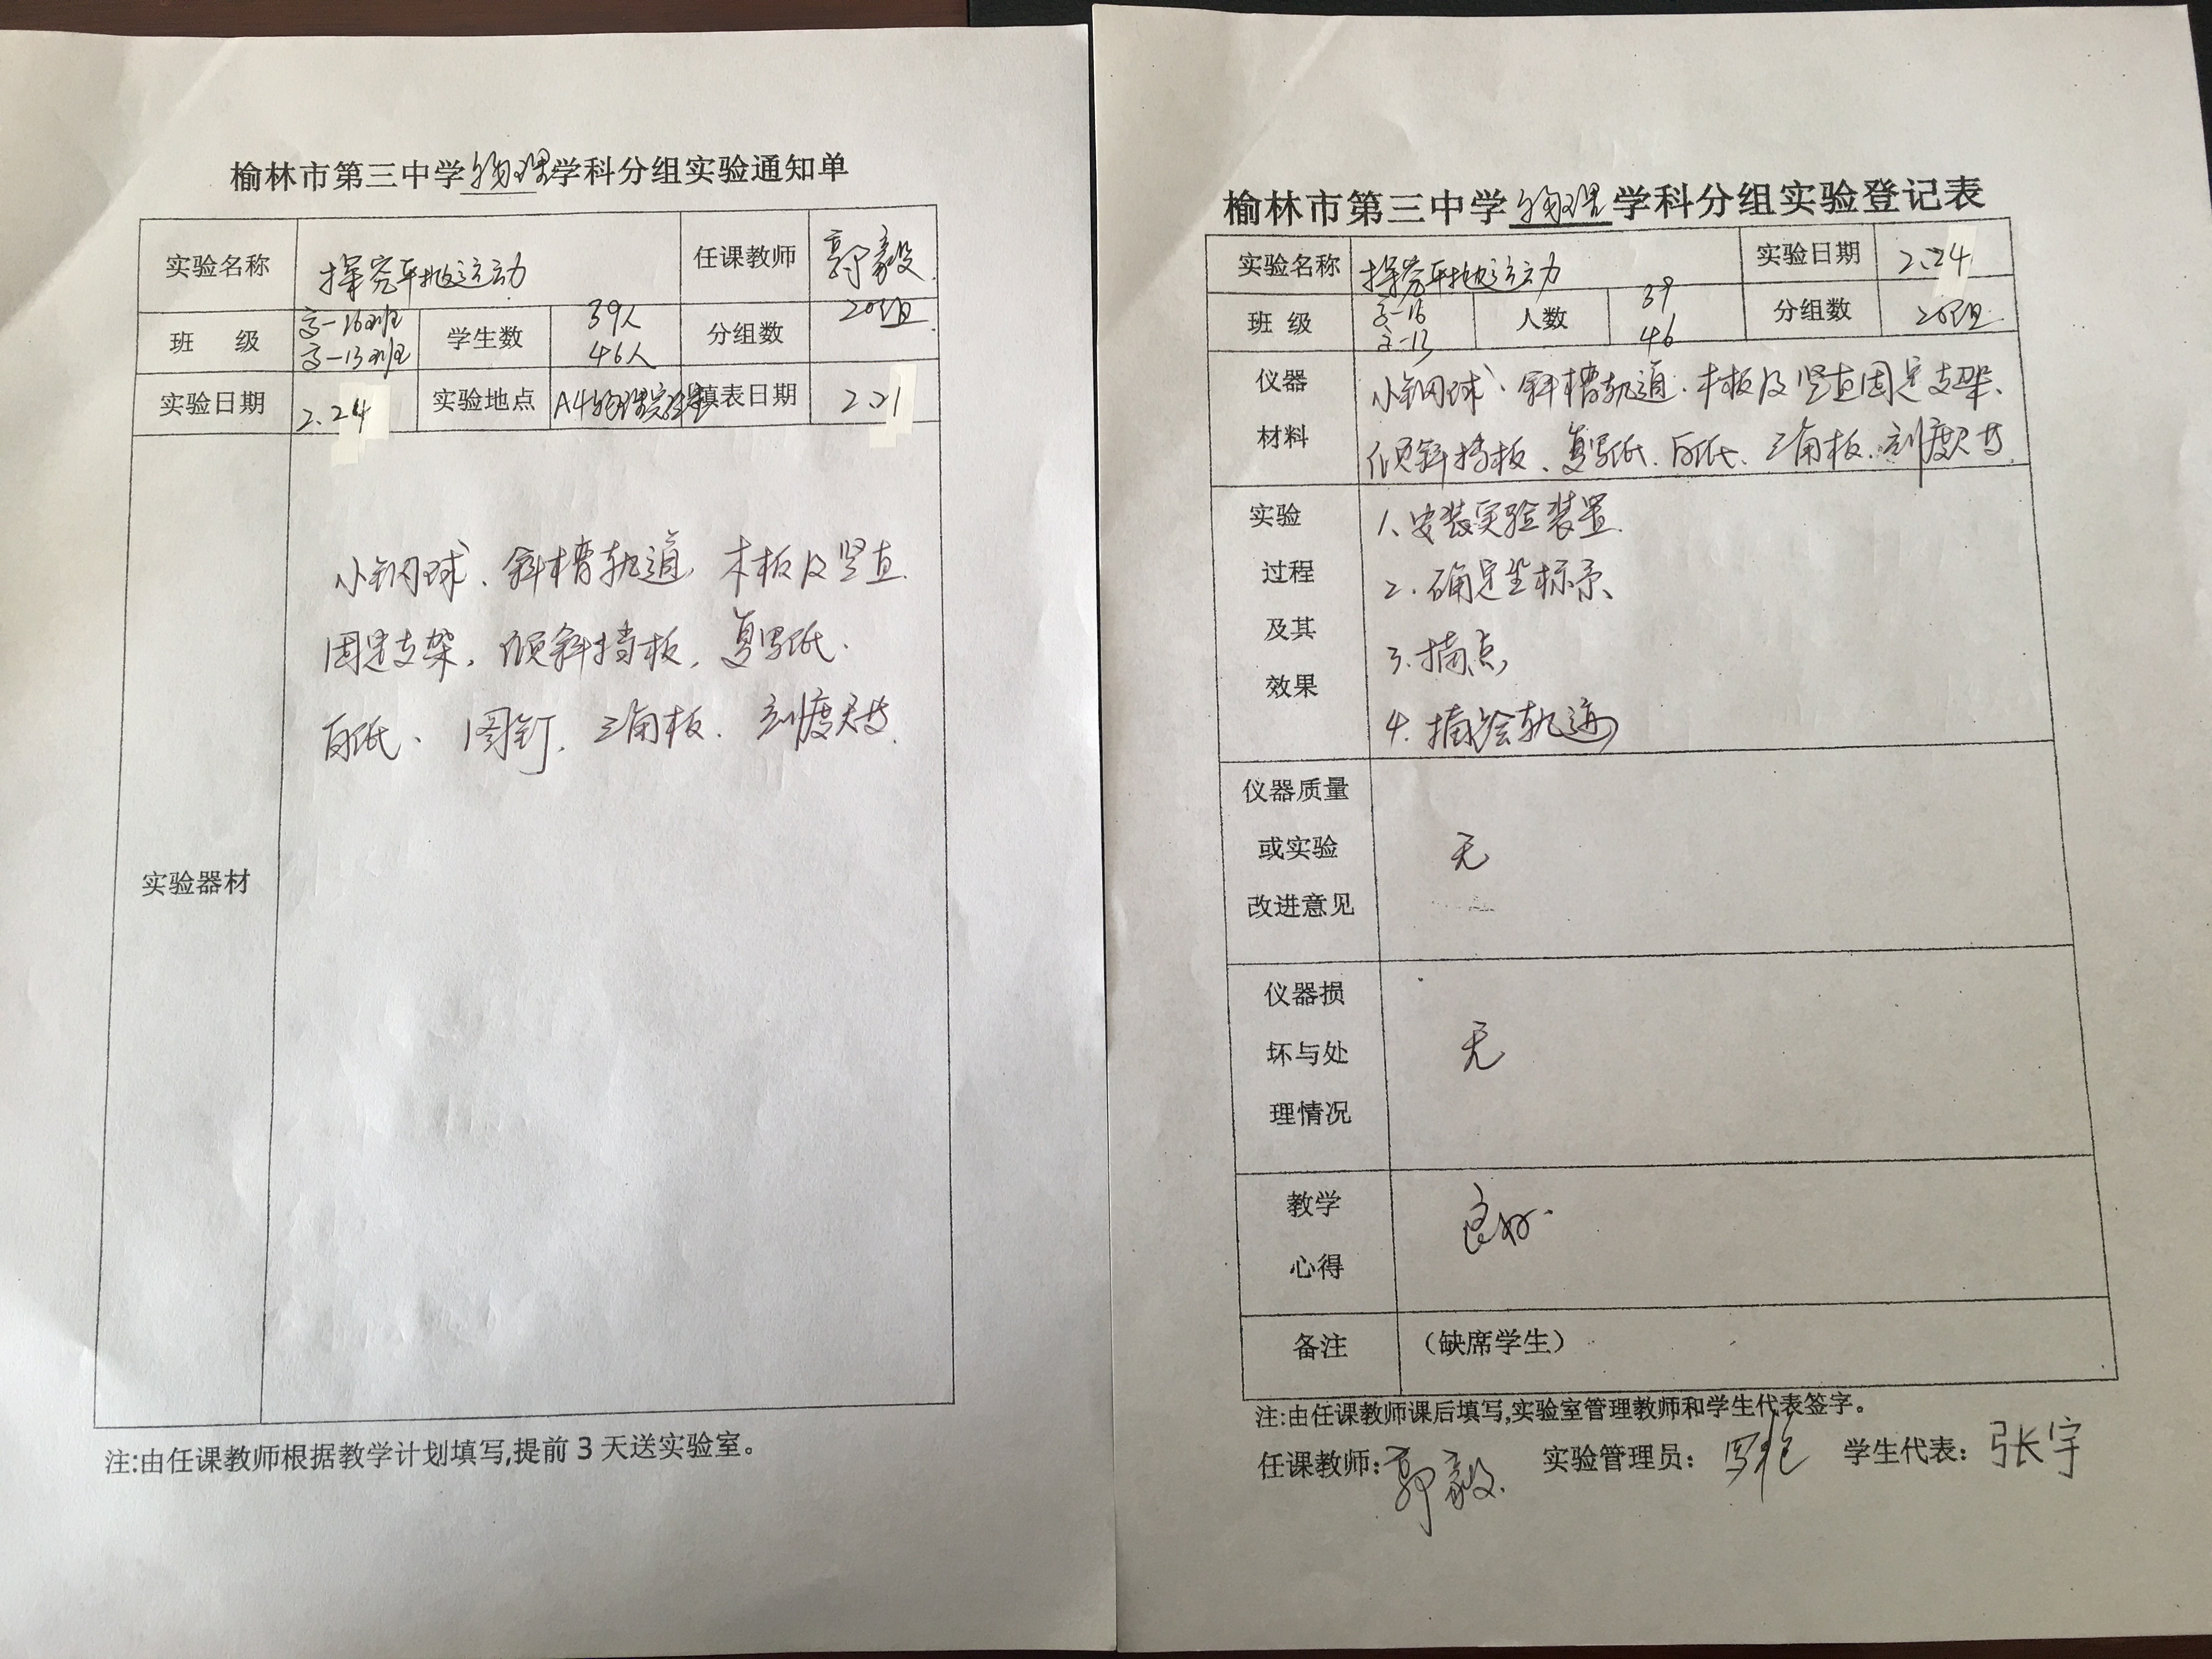 榆林市第三中学物理学科分组实验通知单
实验名称 探究平抛运动 任课教师 郭毅
班 级 高一16班 学生数 39人 分组数 20组
高一13班 46人
实验日期 2.24 实验地点 A4物理实验室 填表日期 2.21
实验器材
小钢球、斜槽轨道、木板及竖直
固定支架、倾斜挡板、复写纸、
白纸、图钉、三角板、刻度尺等
注:由任课教师根据教学计划填写,提前3天送实验室。
榆林市第三中学物理学科分组实验登记表
实验名称 探究平抛运动 实验日期 2.24
班 级 高一16 人数 39 分组数 20组
高一13 46
仪器 小钢球、斜槽轨道、木板及竖直固定支架、
材料 倾斜挡板、复写纸、白纸、三角板、刻度尺等
实验 1、安装实验装置.
过程 2.确定坐标系、
及其 3.描点
效果 4.描绘轨迹
仪器质量
或实验 无
改进意见
仪器损
坏与处 无
理情况
教学 良好.
心得
备注 (缺席学生)
注:由任课教师课后填写,实验室管理教师和学生代表签字。
任课教师:郭毅 实验管理员: 学生代表:张宇